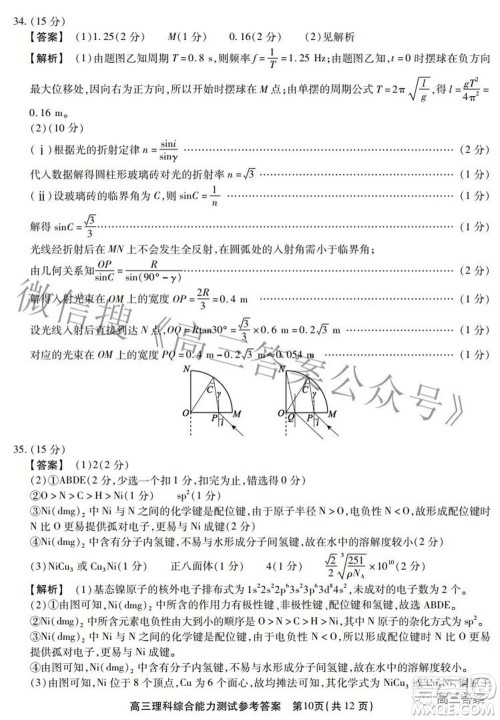 34. (15 分)
【答案】 (1)1.25(2 分) M(1 分) 0.16(2 分) (2)见解析
【解析】 (1)由题图乙知周期 T=0.8 s,则频率 f=1/T=1.25 Hz;由题图乙知,t=0 时摆球在负方向
最大位移处,因向右为正方向,所以开始时摆球在 M 点;由单摆的周期公式 T=2π√(l/g),得 l=gT²/4π²=
0.16 m。
(2)(10 分)
(ⅰ)根据光的折射定律 n=sini/sinγ (2 分)
代入数据解得圆柱形玻璃砖对光的折射率 n=√3 (1 分)
(ⅱ)设玻璃砖的临界角为 C,则 sinC=1/n (1 分)
解得 sinC=√3/3 (1 分)
光线经折射后在 MN 上不会发生全反射,在圆弧处的入射角需小于临界角
由几何关知 OP/sinC=R/sin(90°-γ) (2 分)
解得入射光束在 OM 上的宽度 OP=2R/3=0.4 m (1 分)
设光线入射后直接到达 N 点,OQ=Rtan30°=√3/3×0.6 m=0.2√3 m (1 分)
对应的光束在 OM 上的宽度 PQ=0.4 m-0.2√3 m≈0.054 m (1 分)
N
C
γ
O
P
i
M
N
C
γ
O
Q
P
i
M
35. (15 分)
【答案】 (1)2(2 分)
(2)①ABDE(2 分,少选一个扣 1 分,扣完为止,错选得 0 分)
②O>N>C>H>Ni(1 分) sp²(1 分)
③Ni(dmg)₂ 中 Ni 与 N 之间的化学键是配位键,由于原子半径 N>O、电负性 N<O,故形成配位键时
N 更易提供孤对电子,更易与 Ni 成键(2 分)
④Ni(dmg)₂ 中含有分子内氢键,不易与水形成分子间氢键,故在水中的溶解度较小(2 分)
(3)NiCu₃ 或 Cu₃Ni(1 分) 正八面体(1 分) √2/2 ∛(251/ρNA)×10¹⁰(2 分)
【解析】 (1)基态镍原子的核外电子排布式为 1s²2s²2p⁶3s²3p⁶3d⁸4s²,未成对的电子数为 2。
(2)①由图可知,Ni(dmg)₂ 中含有的作用力有极性键、非极性键、配位键和氢键,故选 ABDE。
②Ni(dmg)₂ 中所含元素电负性由大到小的顺序是 O>N>C>H>Ni,其中 N 原子的杂化方式为 sp²。
③由图可知,Ni(dmg)₂ 中 Ni 与 N 之间的化学键是配位键,由于电负性 N<O,故形成配位键时 N 更易
提供孤对电子,更易与 Ni 成键。
④由图可知,Ni(dmg)₂ 中含有分子内氢键,不易与水形成分子间氢键,故在水中的溶解度较小。
(3)由图可知,Ni 位于 8 个顶点,Cu 位于 6 个面心,由均摊法可知,其化学式为 NiCu₃ 或
高三理科综合能力测试参考答案 第10页(共 12 页)
微信搜《高三答案公众号》
高三答案